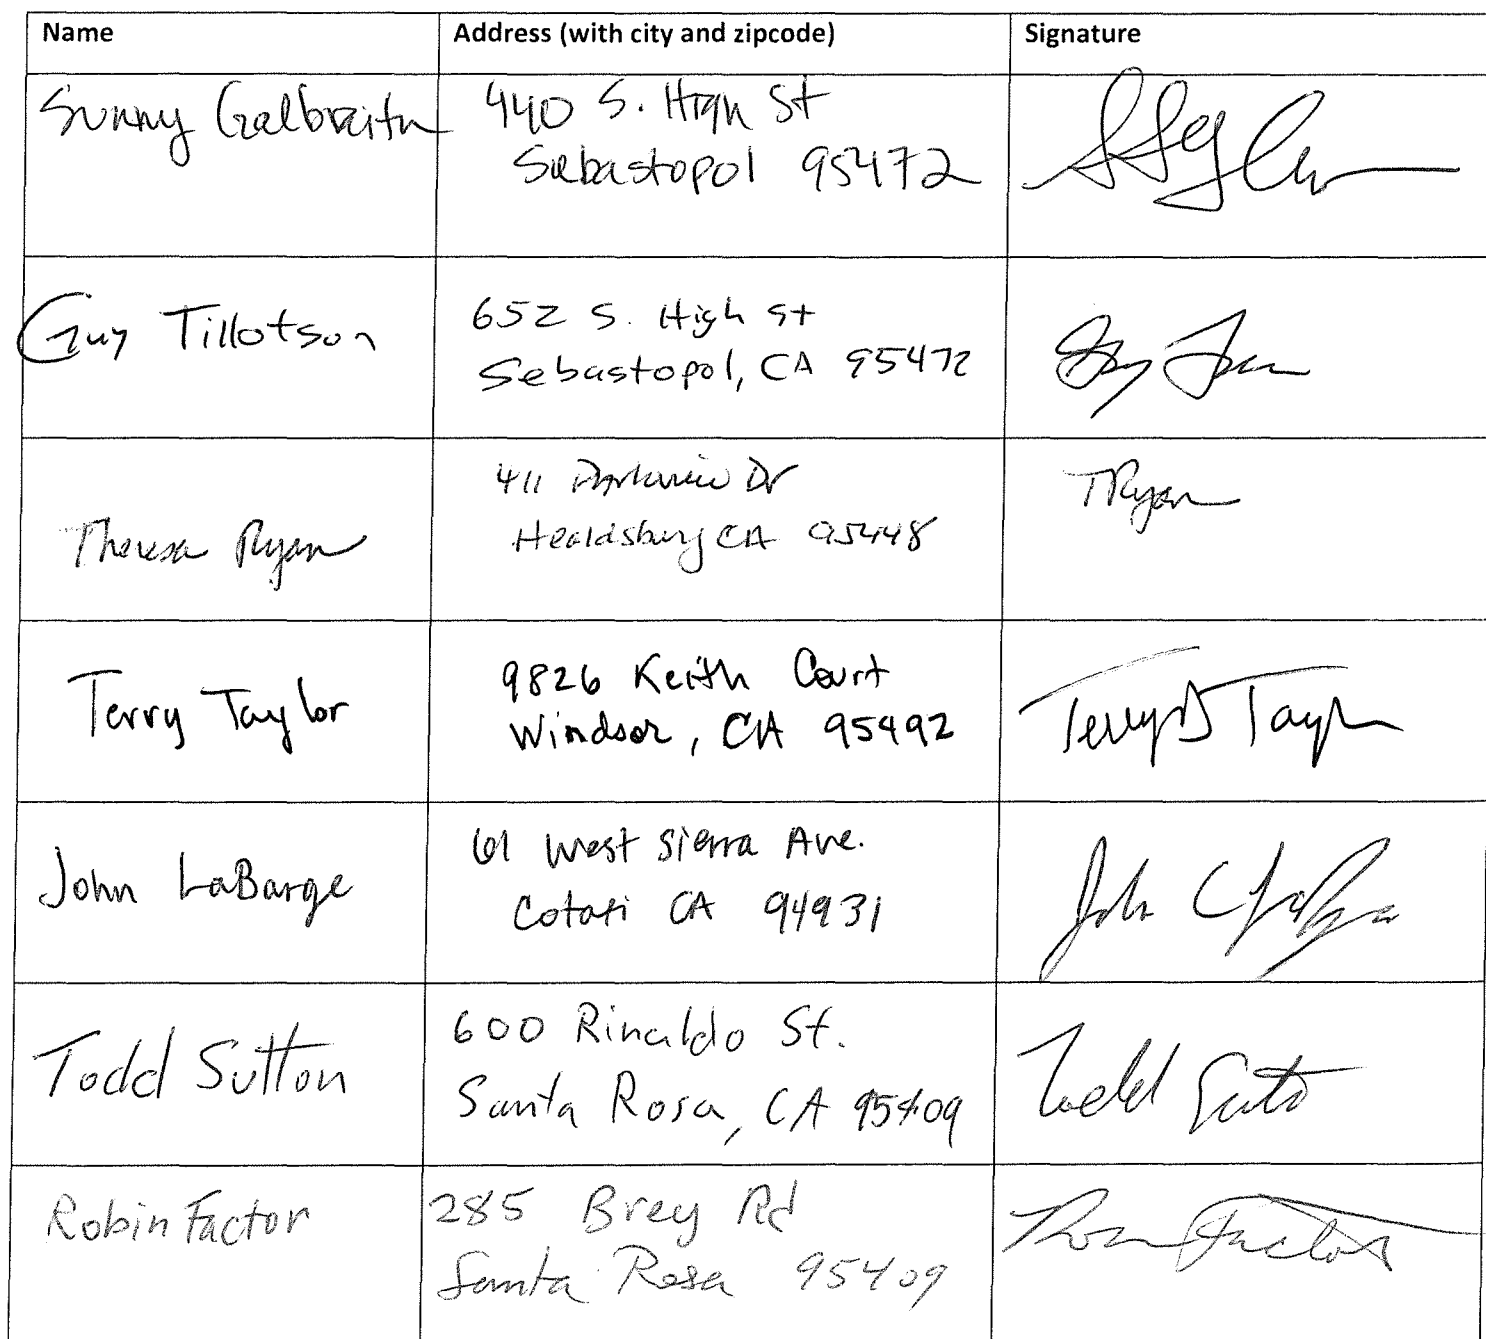 Name Address (with city and zipcode) Signature
Sunny Galbraith 440 S. High St
Sebastopol 95472
Guy Tillotson 652 S. High St
Sebastopol, CA 95472
411 Parkview Dr TRyan
Theresa Ryan Healdsburg CA 95448
Terry Taylor 9826 Keith Court
Windsor, CA 95492 Terry D Taylor
John LaBarge 61 West Sierra Ave.
Cotati CA 94931 John C
Todd Sutton 600 Rinaldo St.
Santa Rosa, CA 95409 Todd
Robin Factor 285 Brey Rd Factor
Santa Rosa 95409